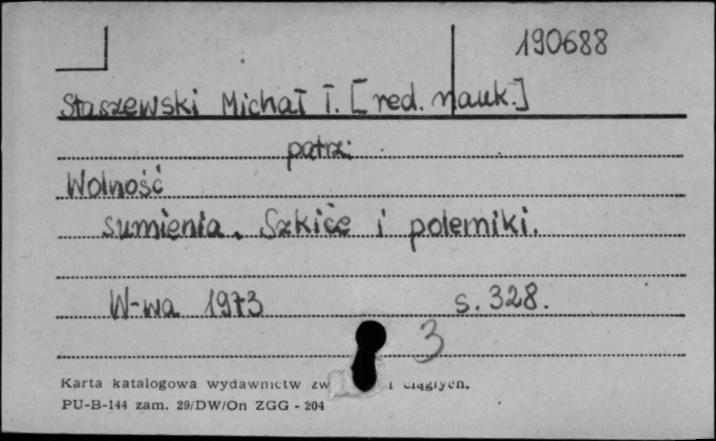 190688
Staszewski Michał T. [red. nauk.]
patrz:
Wolność
sumienia. Szkice i polemiki.
W-wa 1973 s. 328.
3
Karta katalogowa wydawnictw zw i ciągłych.
PU-B-144 zam. 29/DW/On ZGG - 204